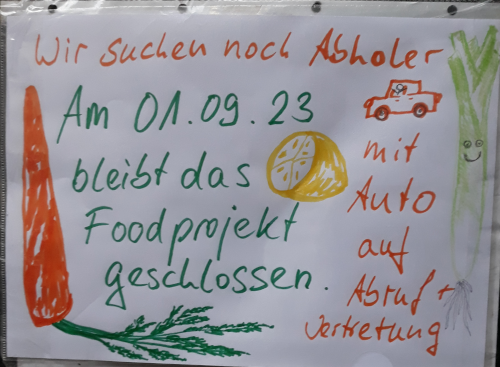 Wir suchen noch Abholer
Am 01.09.23
bleibt das
Foodprojekt
geschlossen.
mit
Auto
auf
Abruf +
Vertretung